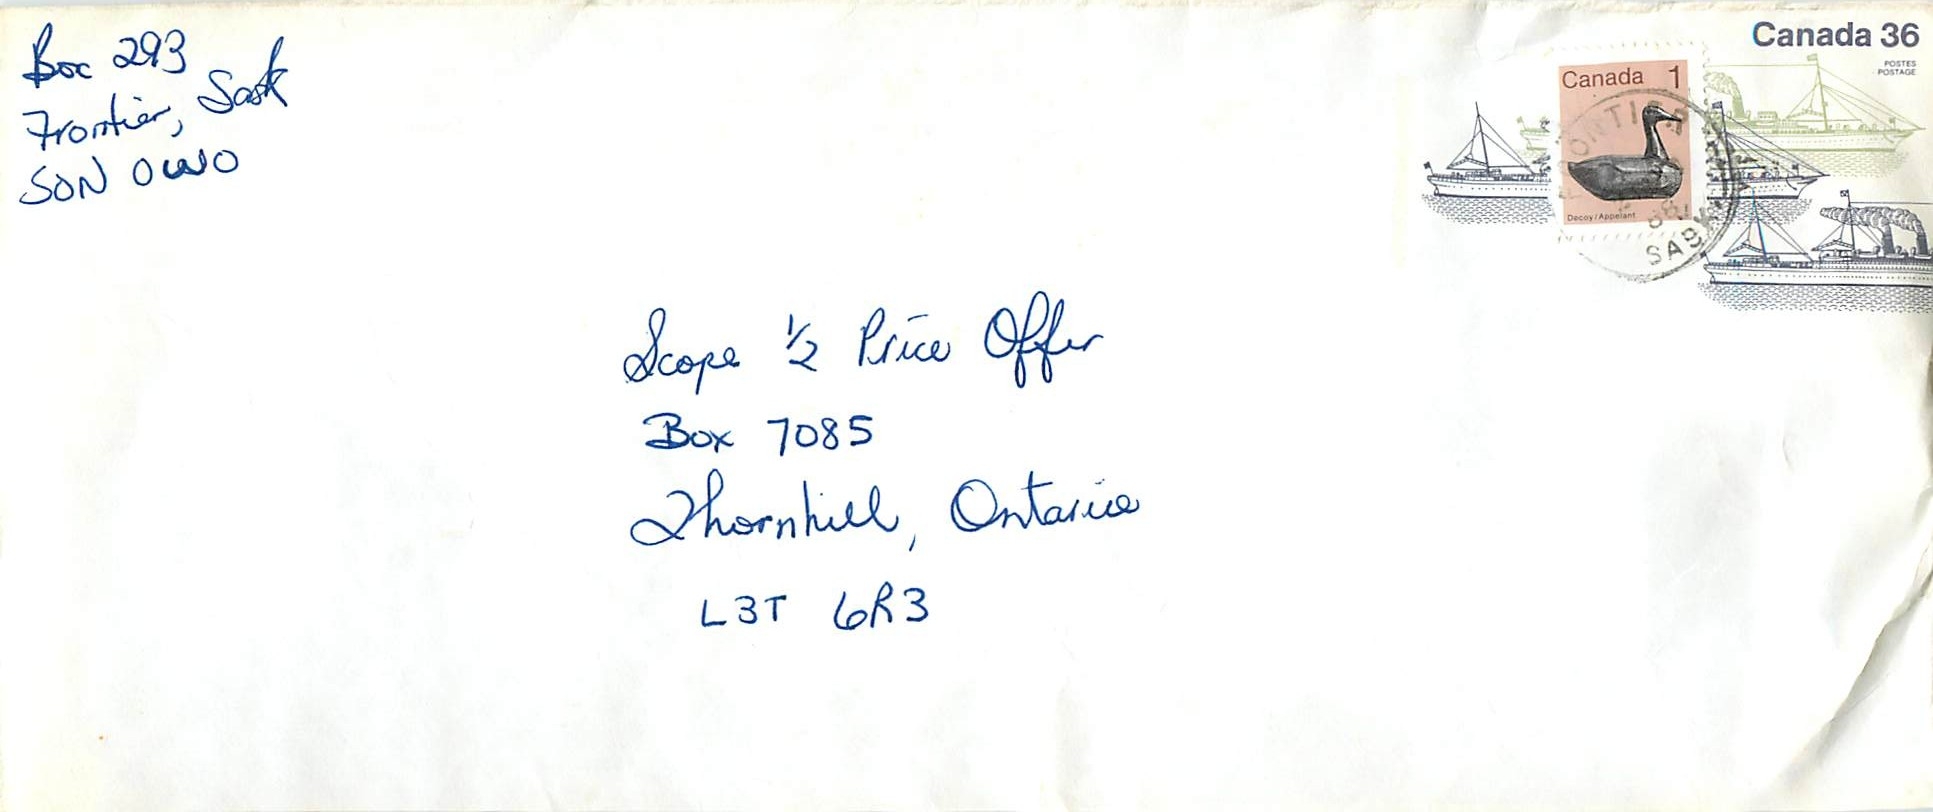 Box 293
Frontier, Sask
S0N 0W0
Canada 36
POSTES
POSTAGE
Canada 1
Decoy/Appelant
88
SASK
Scope 1/2 Price Offer
Box 7085
Thornhill, Ontario
L3T 6R3